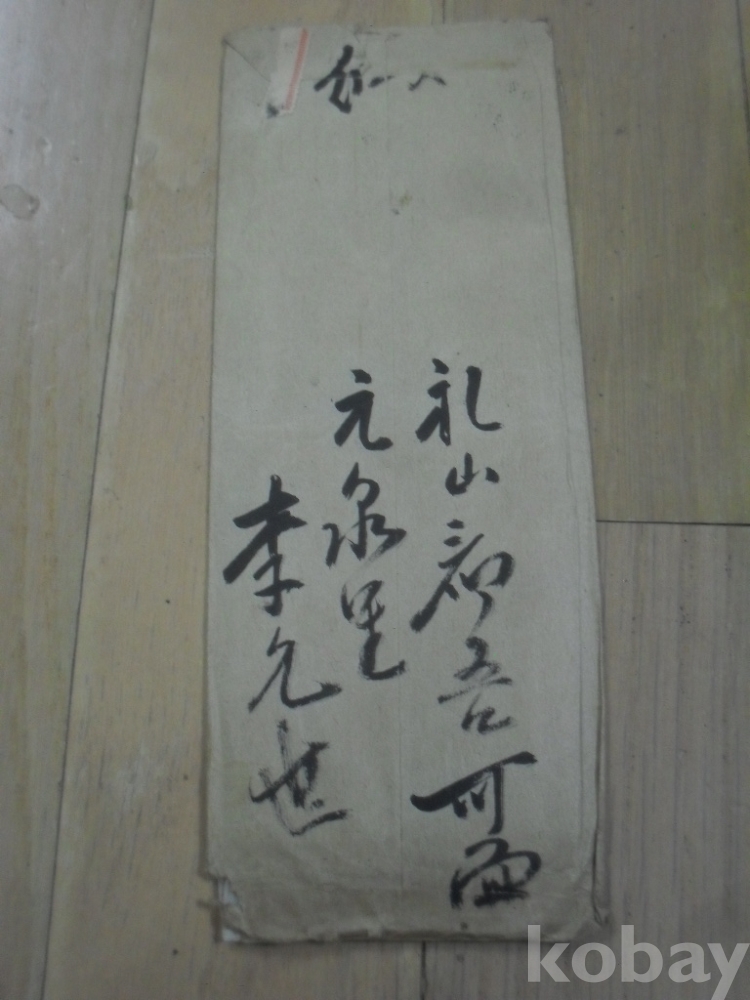 礼山郡吾可面
元泉里
李允世
kobay